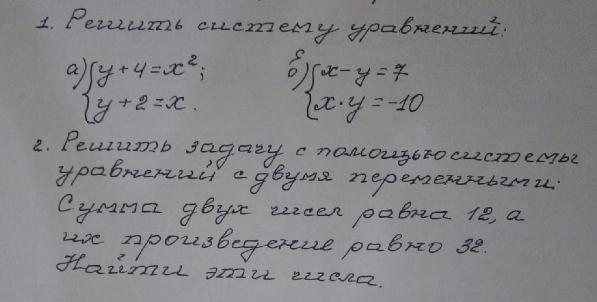 1. Решить систему уравнений:
а) { y + 4 = x²; б) { x - y = 7
{ y + 2 = x. { x · y = -10
2. Решить задачу с помощью системы
уравнений с двумя переменными:
Сумма двух чисел равна 12, а
их произведение равно 32.
Найти эти числа.